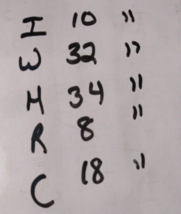 I 10 "
W 32 "
H 34 "
R 8 "
C 18 "